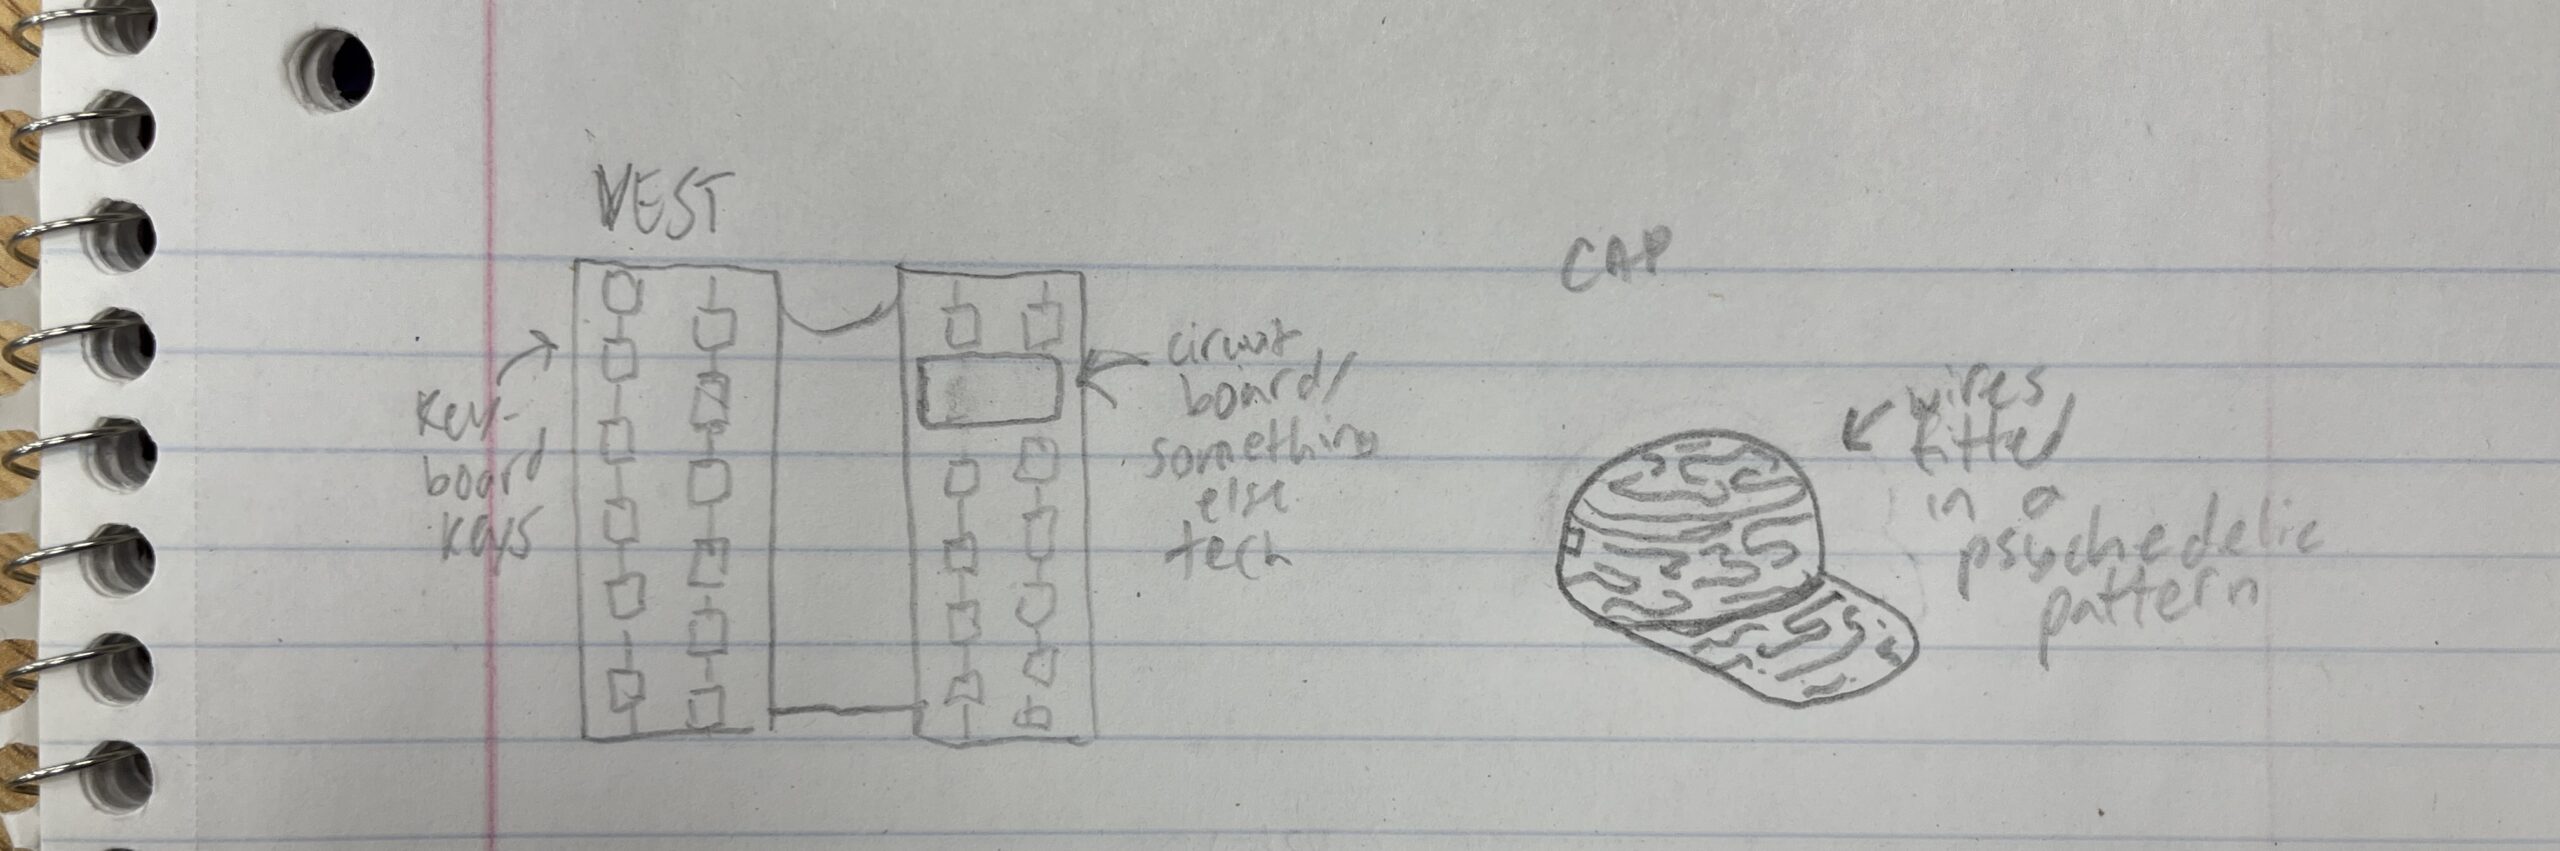 VEST
Key-
board
Keys
circuit
board/
something
else
tech
CAP
wires
fitted
in a
psychedelic
pattern